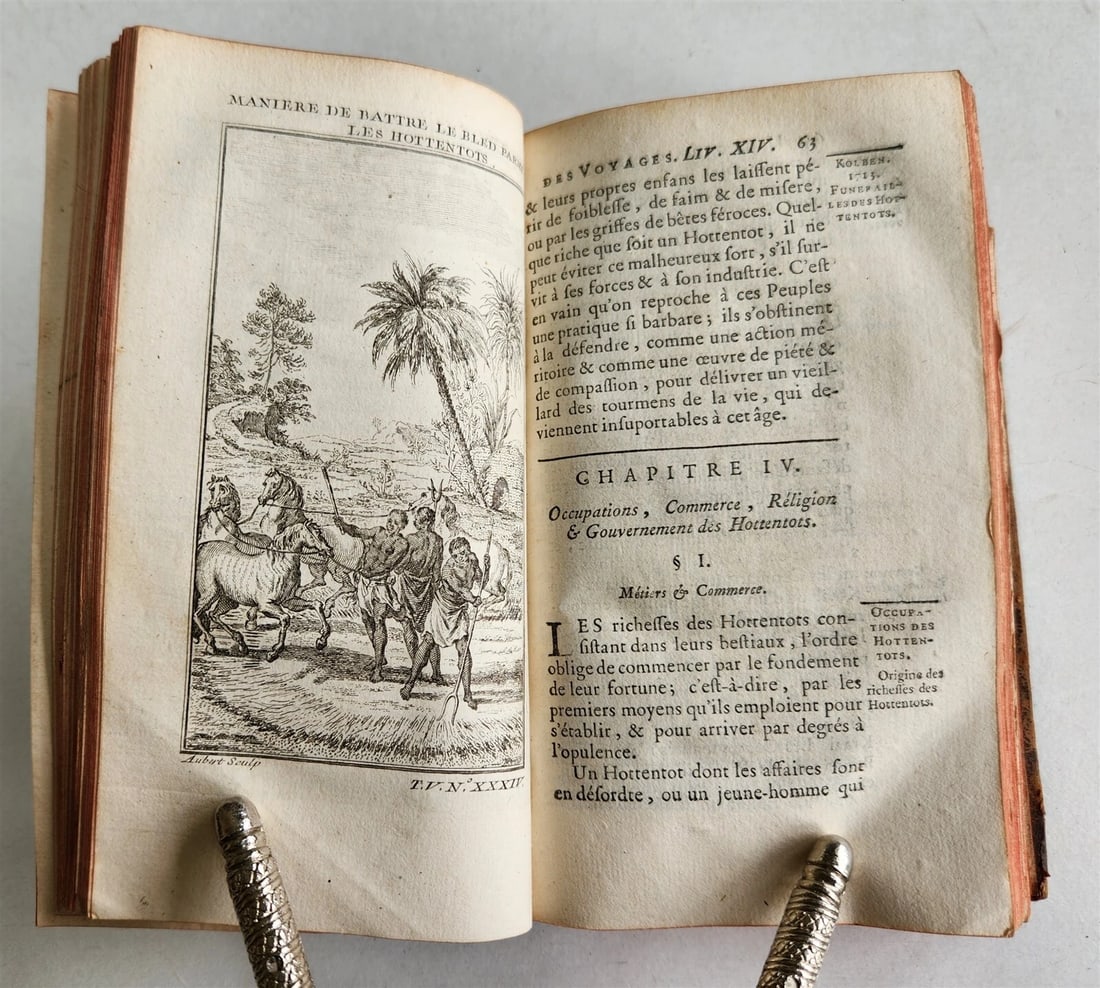 MANIERE DE BATTRE LE BLED PAR
LES HOTTENTOTS
Aubert Sculp
T.V. N.º XXXIV
DES VOYAGES. LIV. XIV. 63
& leurs propres enfans les laiſſent pé-
rir de foibleſſe, de faim & de miſere,
ou par les griffes de bêtes féroces. Quel-
que riche que ſoit un Hottentot, il ne
peut éviter ce malheureux ſort, s'il ſur-
vit à ſes forces & à ſon induſtrie. C'eſt
en vain qu'on reproche à ces Peuples
une pratique ſi barbare; ils s'obſtinent
à la défendre, comme une action mé-
ritoire & comme une œuvre de piété &
de compaſſion, pour délivrer un vieil-
lard des tourmens de la vie, qui de-
viennent inſuportables à cet âge.
KOLBEN.
1713.
FUNERAIL-
LES DES HOT-
TENTOTS.
CHAPITRE IV.
Occupations, Commerce, Réligion
& Gouvernement des Hottentots.
§ I.
Métiers & Commerce.
LES richeſſes des Hottentots con-
ſiſtant dans leurs beſtiaux, l'ordre
oblige de commencer par le fondement
de leur fortune; c'eſt-à-dire, par les
premiers moyens qu'ils emploient pour
s'établir, & pour arriver par degrés à
l'opulence.
Un Hottentot dont les affaires ſont
en déſordre, ou un jeune-homme qui
OCCUPA-
TIONS DES
HOTTEN-
TOTS.
Origine des
richeſſes des
Hottentots.